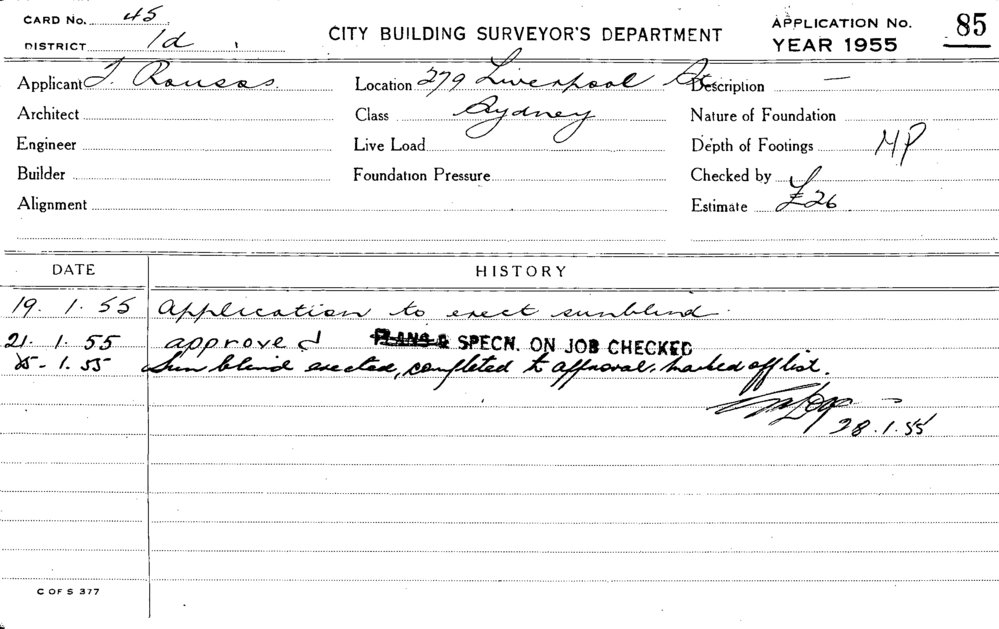 CARD No. 45
DISTRICT 1d
CITY BUILDING SURVEYOR'S DEPARTMENT
APPLICATION No. 85
YEAR 1955
Applicant J. Rousos. Location 279 Liverpool St. Description —
Architect Class Sydney Nature of Foundation
Engineer Live Load Depth of Footings MP
Builder Foundation Pressure Checked by
Alignment Estimate £26
DATE HISTORY
19. 1. 55 Application to erect sunblind.
21. 1. 55 approved PLANS & SPECN. ON JOB CHECKED
25-1.55 Sun blind erected, completed to approval. marked off list.
28.1.55
C OF S 377